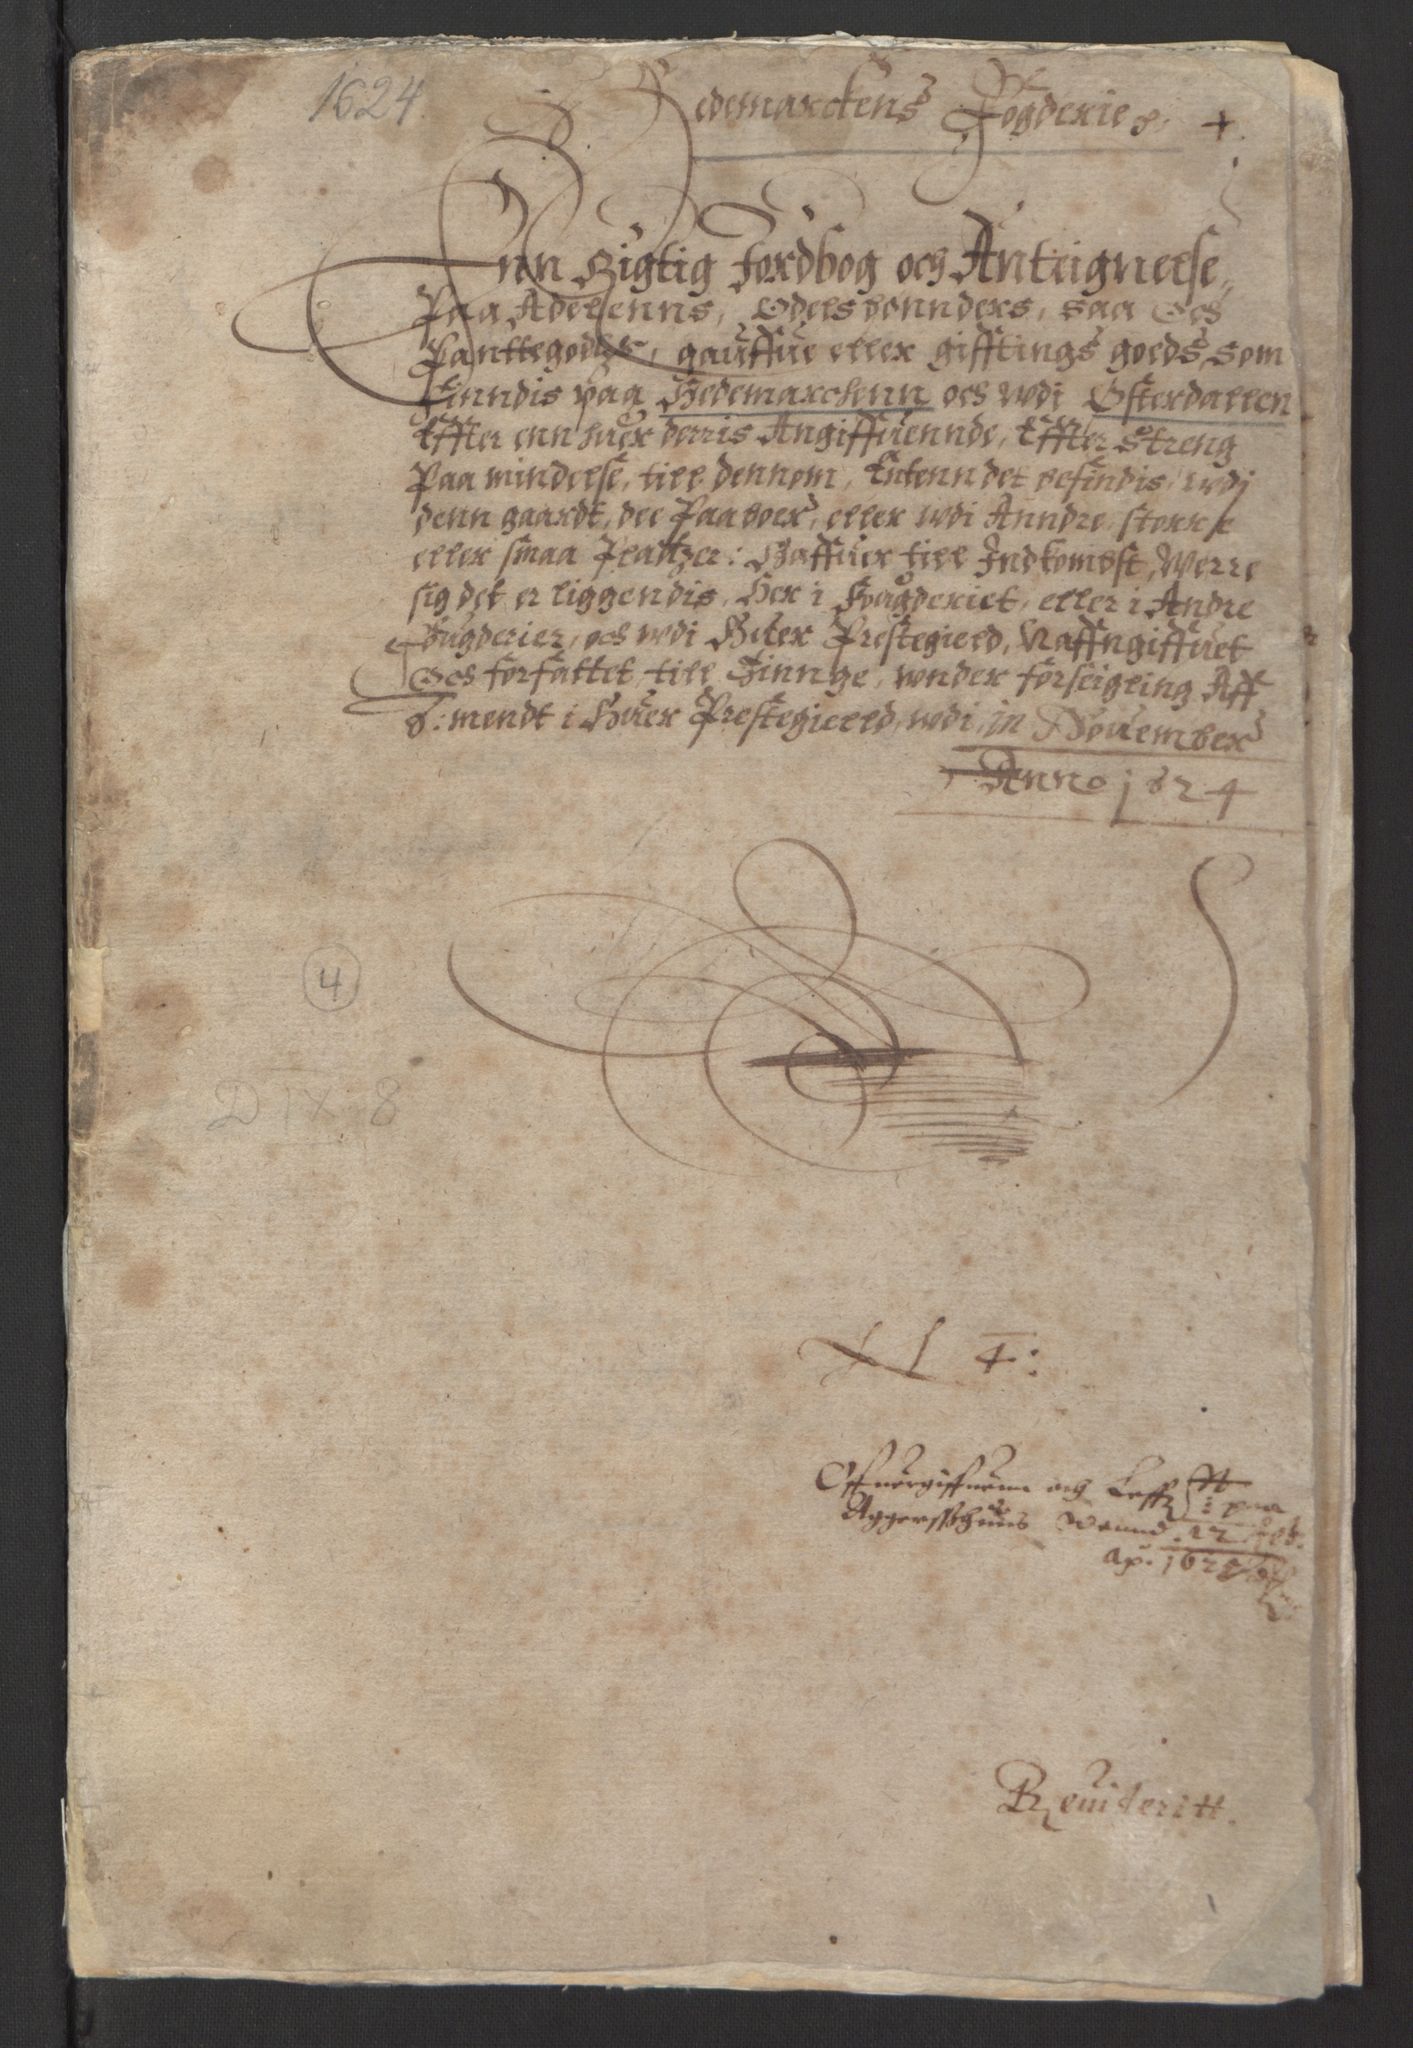 1624.
Hedemarckens Fogderie +
Enn Rigtig Jordbog och Anteignelse
Paa Adelenns, Odelsbønnders, saa Och
Panttegodtz, gauffue eller gifftings goeds, som
Finndis paa Hedemarchenn och wdi Østerdallen
Effter enn huer derris Angiffuennde, Effter Streng
Paamindelse, till dennom, Entenn det befindis, wdi
denn gaardt, dee Paaboer, eller wdi Anndre storre
eller smaa Platzer: Haffuer till Indkombst, Werre
sig det er liggendis, Her i Fougderiet, eller i Andre
Fugderier, och wdi Huer Prestegield, Naffngiffuet
Och forfattet till Tinnge, wnder forseigling Aff
6: mendt i Huer Prestegieeld, wdi, in Nouember
Anno 1624
4
D IX 8
N 4:
Offuergiffuenn och paa
Aggerszhuus 12
ap. 1625
Reuideritt.